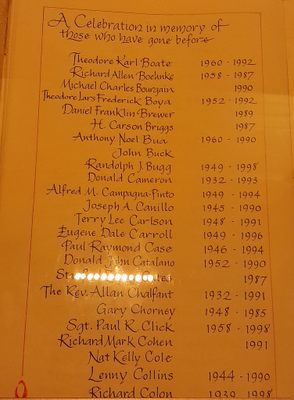 A Celebration in memory of
those who have gone before
Theodore Karl Boate 1960 - 1992
Richard Allen Boehnke 1958 - 1987
Michael Charles Bourgain 1990
Theodore Lars Frederick Boya 1952 - 1992
Daniel Franklin Brewer 1989
H. Carson Briggs 1987
Anthony Noel Bua 1960 - 1990
John Buck
Randolph J. Bugg 1949 - 1998
Donald Cameron 1932 - 1993
Alfred M. Campagna-Pinto 1949 - 1994
Joseph A. Canillo 1945 - 1990
Terry Lee Carlson 1948 - 1991
Eugene Dale Carroll 1949 - 1996
Paul Raymond Case 1946 - 1994
Donald John Catalano 1952 - 1990
1987
The Rev. Allan Chalfant 1932 - 1991
Gary Chorney 1948 - 1985
Sgt. Paul R. Click 1958 - 1998
Richard Mark Cohen 1991
Nat Kelly Cole
Lenny Collins 1944 - 1990
Richard Colon 1939 - 1998